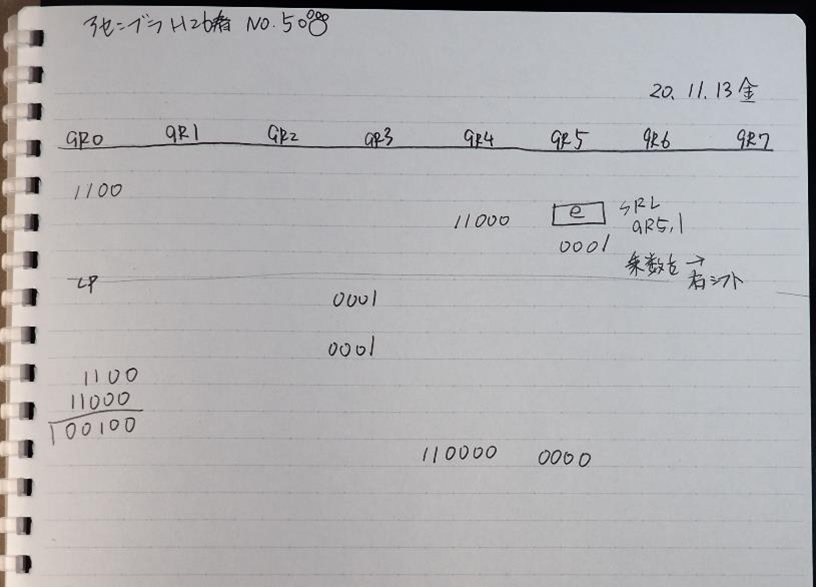 アセンブラ H26春 NO.50
20.11.13金
GR0 GR1 GR2 GR3 GR4 GR5 GR6 GR7
1100
11000 e SRL
GR5,1
0001
乗数を→
右シフト
LP
0001
0001
1100
11000
100100
110000 0000